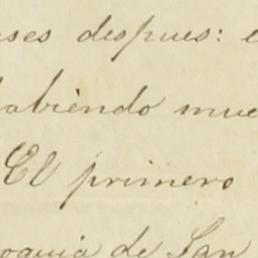 ses despues: e
habiendo mue
El primero
oquia de San